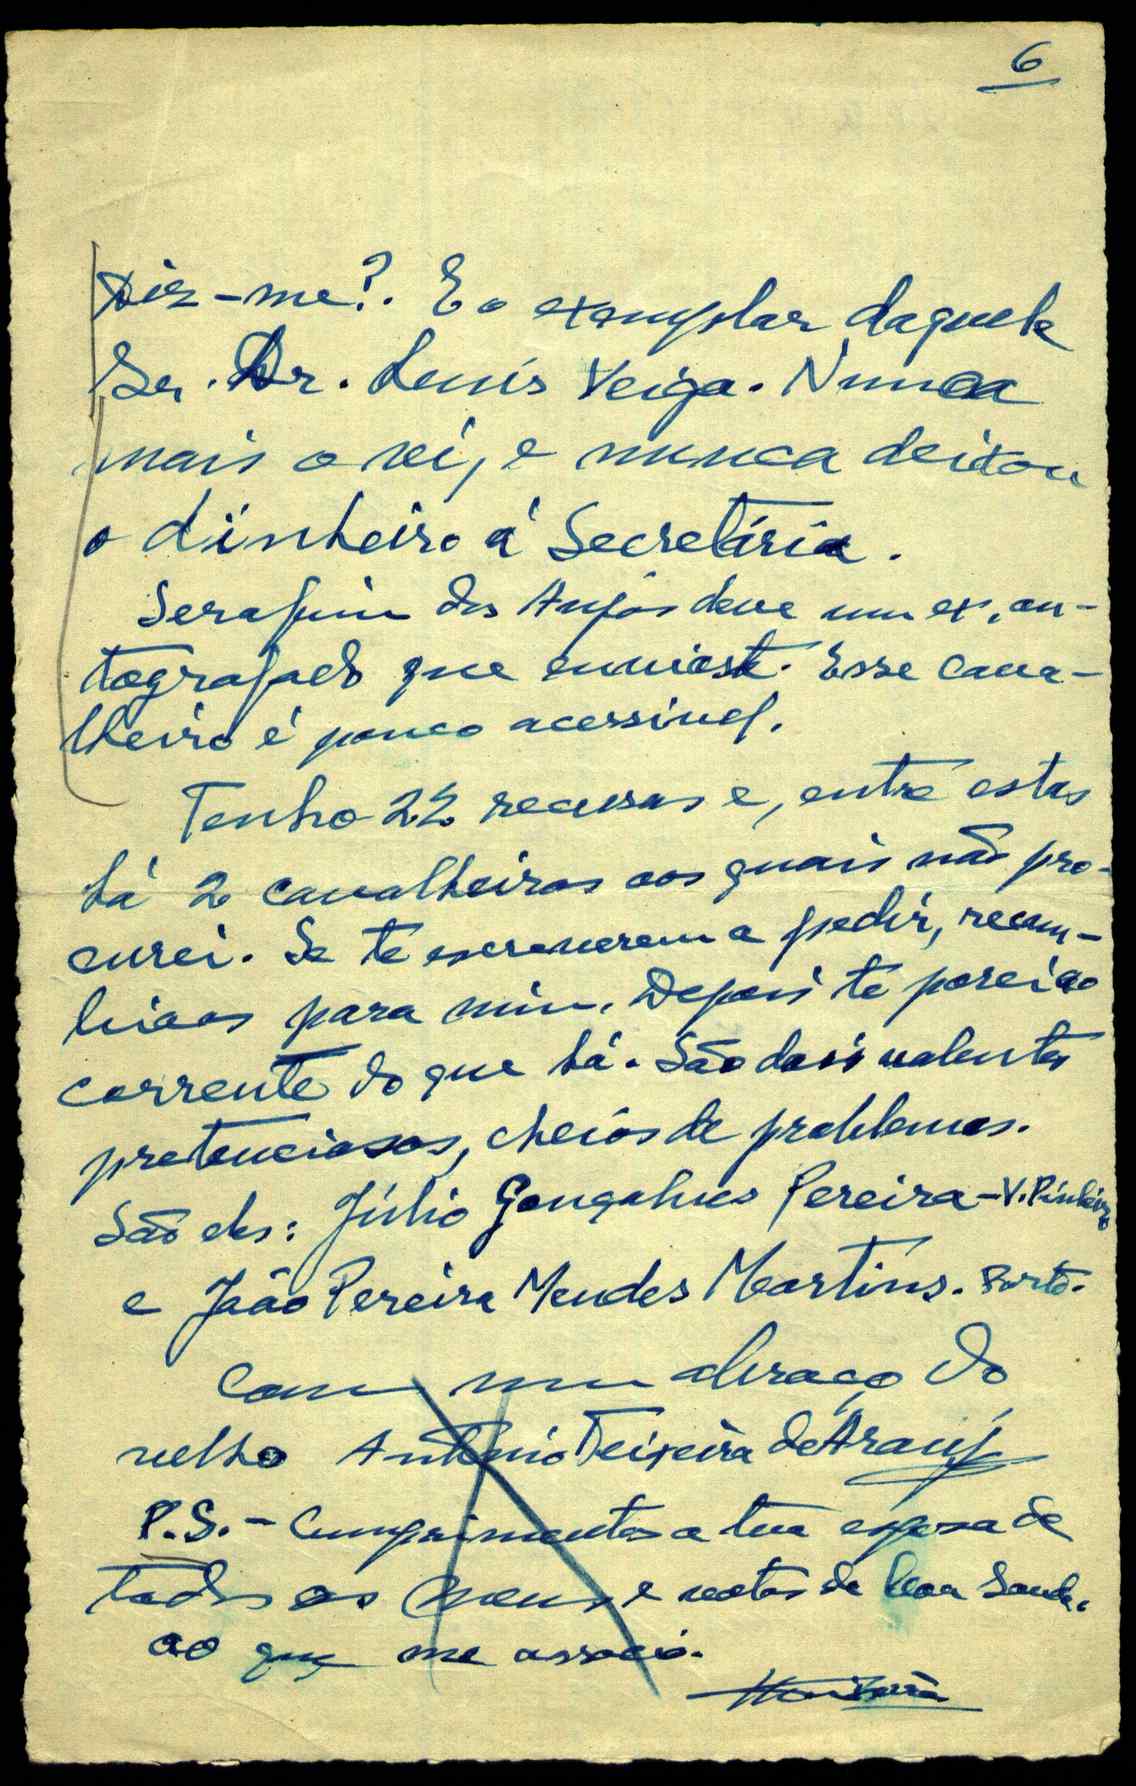 6
Diz-me?. E o exemplar daquele
Sr. Dr. Luís Veiga. Nunca
mais o vi, e nunca deixou
o dinheiro á Secretária.
Serafim dos Anjos deve um ex. au-
tografado que enviaste. Esse cava-
lheiro é pouco acessivel.
Tenho 22 recusas e, entre estas
há 2 cavalheiros aos quais não pro-
curei. Se te escreverem a pedir, recam-
bia-os para mim. Depois te porei ao
corrente do que há. São dois valentes
pretenciosos, cheios de problemas.
São eles: Júlio Gonçalves Pereira - V. Pinheiro
e João Pereira Mendes Martins. Porto.
Com um abraço do
velho António Teixeira de Araujo
P.S. - Cumprimentos a tua esposa de
todos os meus e votos de boa Saude,
ao que me associo.